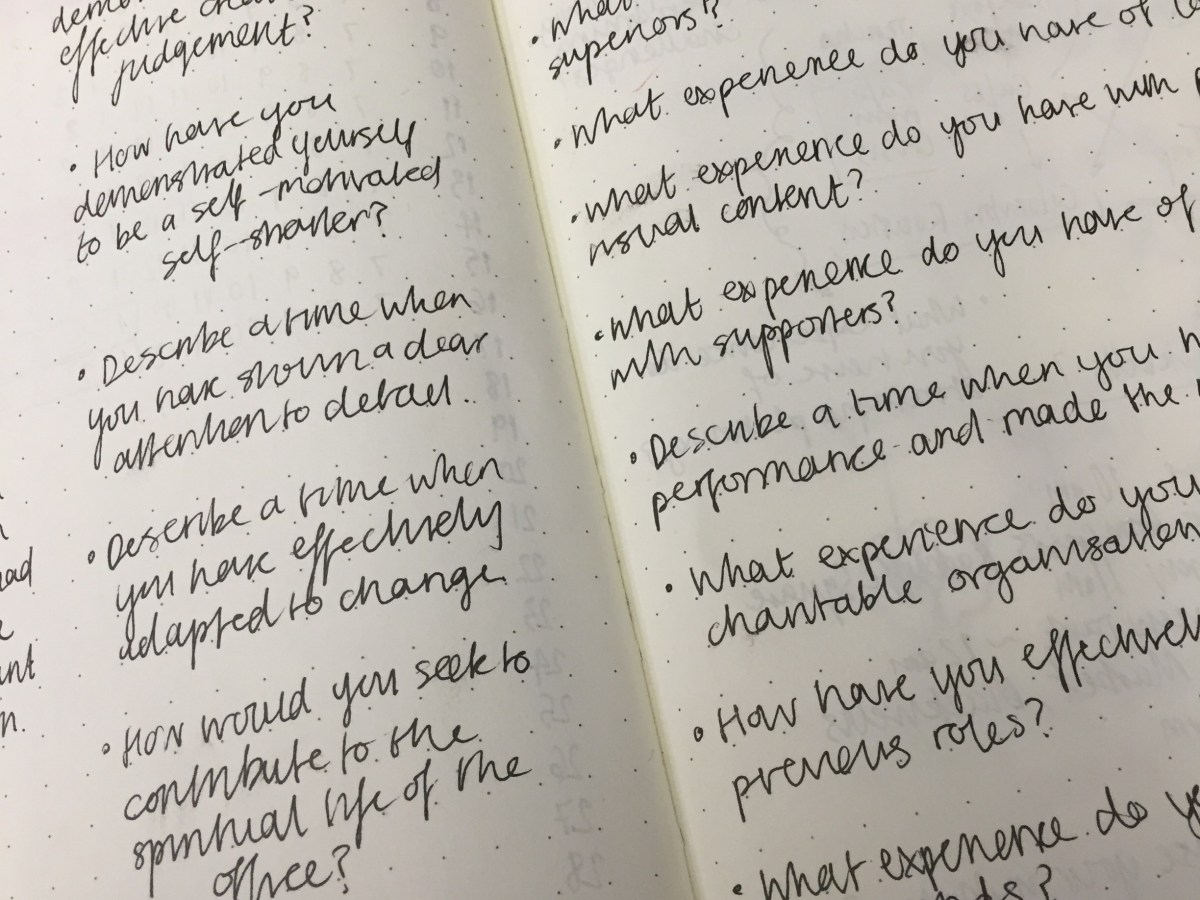 effective
judgement?
• How have you
demonstrated yourself
to be a self-motivated
self-starter?
• Describe a time when
you have shown a clear
attention to detail.
• Describe a time when
you have effectively
adapted to change.
• How would you seek to
contribute to the
spiritual life of the
office?
• What
superiors?
• What experience do you have of
• What experience do you have with
visual content?
• What experience do you have of
with supporters?
• Describe a time when you
performance and made the
• What experience do you
charitable organisation
• How have you effectivel
previous roles?
• What experience do